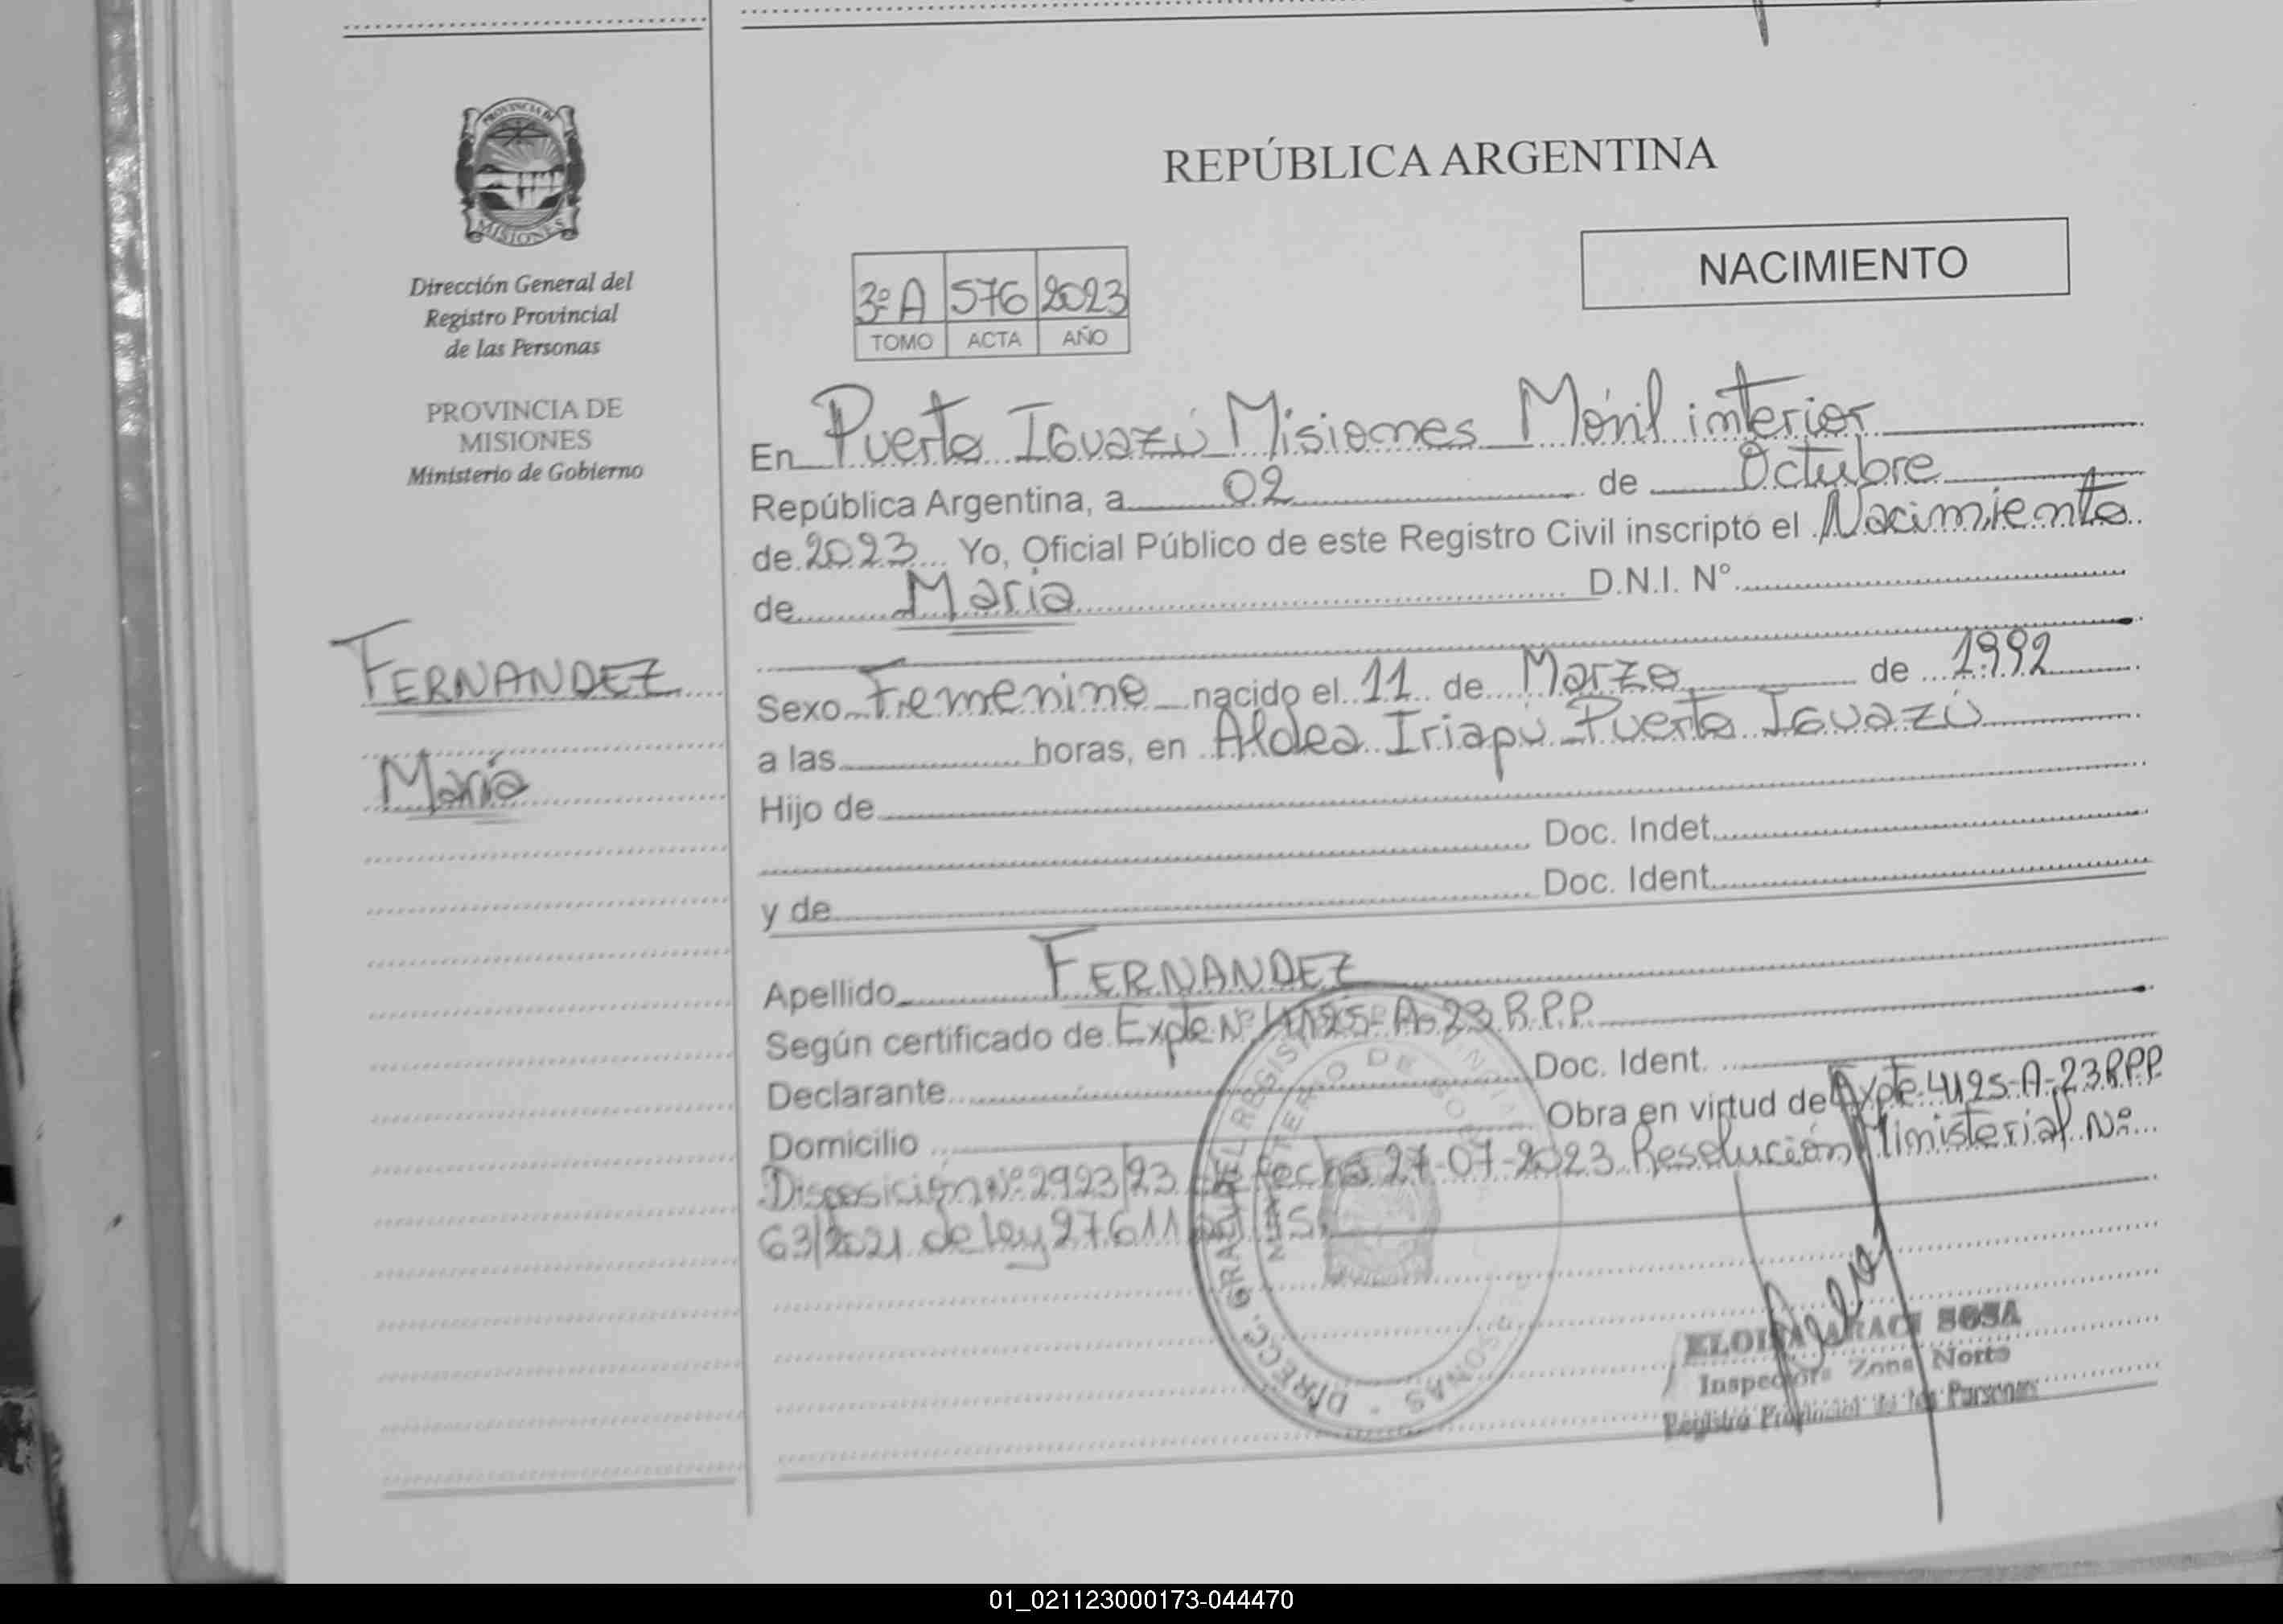 PROVINCIA DE
MISIONES
Dirección General del
Registro Provincial
de las Personas
PROVINCIA DE
MISIONES
Ministerio de Gobierno
FERNANDEZ
María
REPÚBLICA ARGENTINA
NACIMIENTO
3º A 576 2023
TOMO ACTA AÑO
En Puerto Iguazú Misiones Móvil interior
República Argentina, a 02 de Octubre
de 2023 Yo, Oficial Público de este Registro Civil inscripto el Nacimiento
de María D.N.I. N°
Sexo Femenino nacido el 11 de Marzo de 1992
a las horas, en Aldea Iriapú Puerto Iguazú
Hijo de
Doc. Indet.
y de Doc. Ident.
Apellido FERNANDEZ
Según certificado de Expte Nº 4125-A-23 R.P.P.
Declarante Doc. Ident.
Domicilio Obra en virtud de Expte 4125-A-23 RPP
Disposición Nº 2923/23 de fecha 27-07-2023 Resolución Ministerial Nº
63/2021 de Ley 27611
DIRECC. GRAL. DEL REGISTRO
MINISTERIO DE GOB
ELOISA ARACI SOSA
Inspectora Zona Norte
Registro Provincial de las Personas
01_021123000173-044470